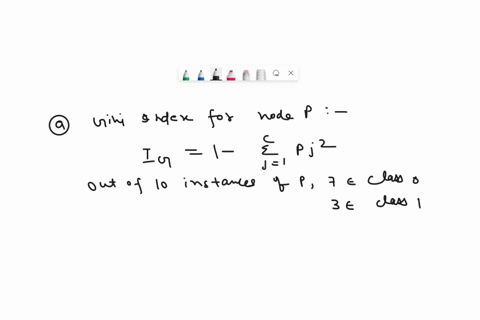 a Gini index for node P :-
I_G = 1 - Σ_{j=1}^{c} Pj²
out of 10 instances of P, 7 ∈ class 0
3 ∈ class 1